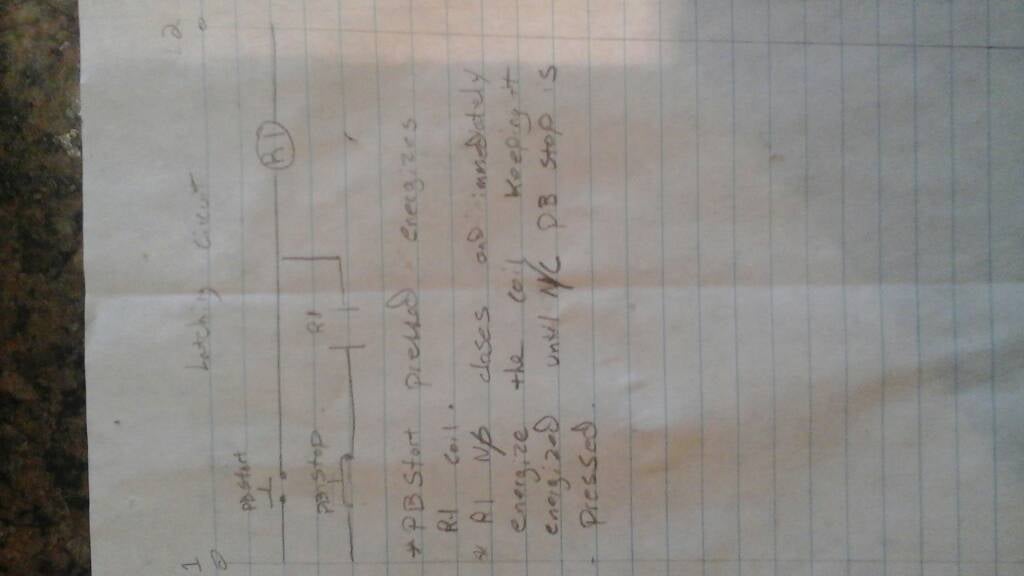 1 Latching Circut 12
PBStart
R1
PB Stop R1
* PBStart pressed energizes
R1 Coil.
* R1 N/O closes and immediately
energize the coil keeping it
energized until N/C PB Stop is
pressed.